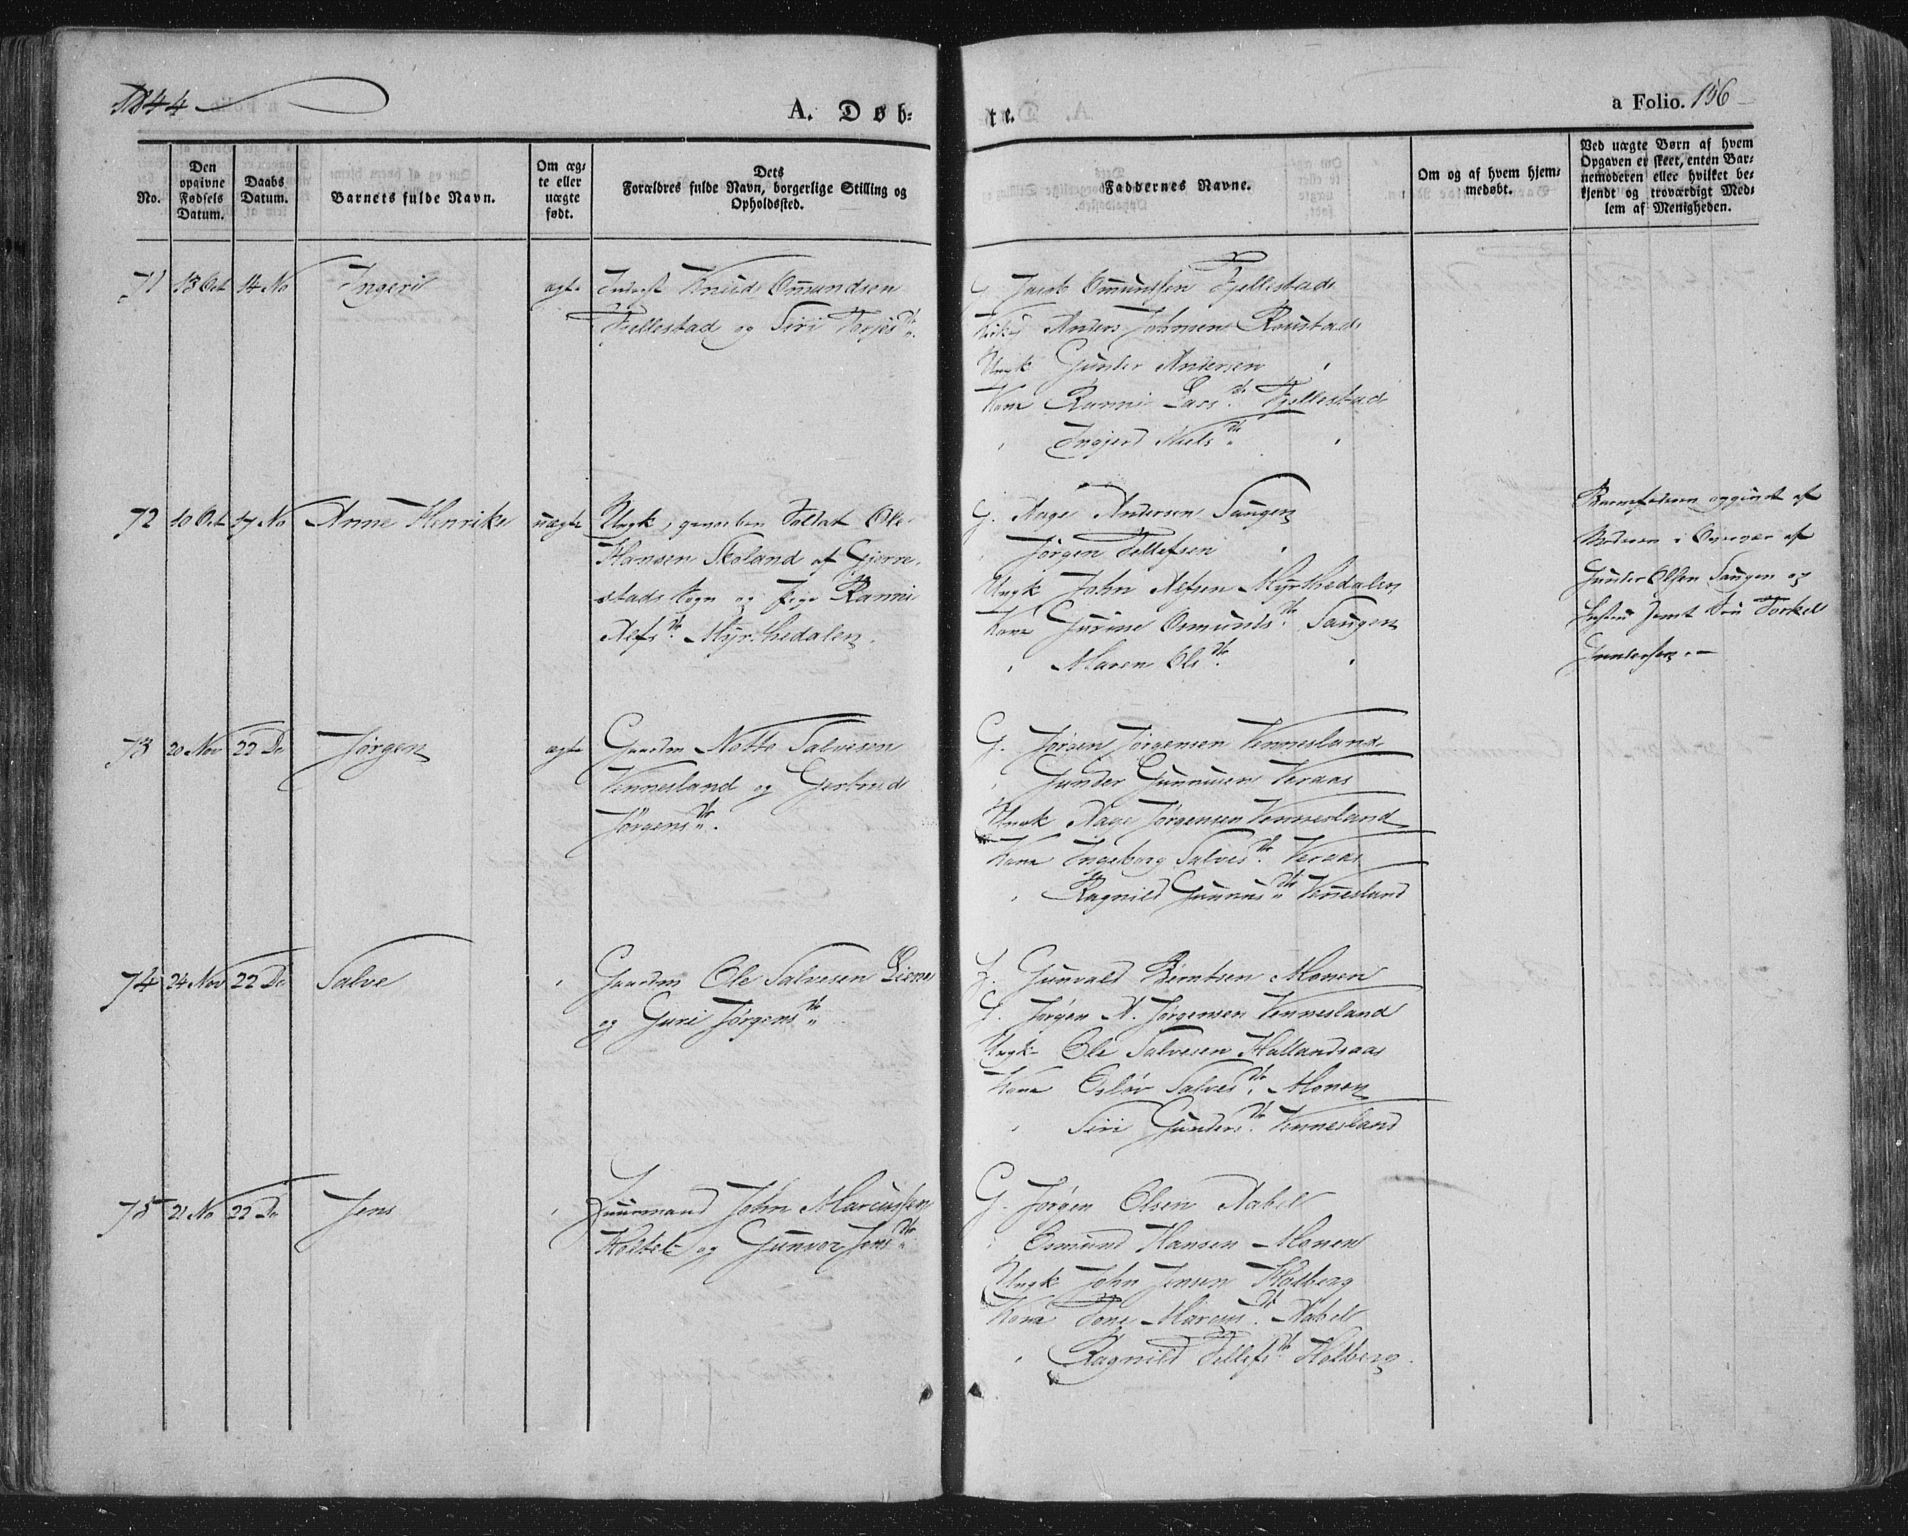 1844
A. Døb-
te.
a Folio. 156
No.
Den opgivne Fødsels Datum.
Daabs Datum.
Barnets fulde Navn.
Om æg-
te eller
uægte
født.
Dets
Forældres fulde Navn, borgerlige Stilling og
Opholdssted.
Faddernes Navne.
Om og af hvem hjem-
medøbt.
Ved uægte Børn af hvem
Opgaven er skeet, enten Bar-
nemoderen eller hvilket be-
kjendt og troværdigt Med-
lem af Menigheden.
71 13 Oct 14 No Ingeri ægte
Inderst Knud Omundsen
Fjellestad og Siri Torjesdr.
G. Jacob Omundsen Fjellestad
Kirks. Anders Johnsen Roustad
Ungk Gunder Andersen "
Kone Ranni Larsdr. Fjellestad
" Ingjerd Nielsdr. "
72 20 Oct 17 No Anne Henrike uægte
Ungk, Soldat Ole
Hansen Skoland af Gjerre-
stads Sogn og Pige Ranni
Alfsdr. Myrthedalen.
G. Aage Andersen Saugen
" Jørgen Tellefsen "
Ungk John Alfsen Myrthedalen
Kone Gurine Osmundsdr. Saugen
" Maren Olsdr. "
Barnefaderen opgivet af
Moderen i Overvær af
Gunder Olsen Saugen og
Hustru samt Søn Torkel
Gundersen.
73 20 Nov 22 De Jørgen ægte
Gaardm Notto Salvesen
Vennesland og Gertrud
Jørgensdr.
G. Jørgen Jørgensen Vennesland
" Gunder Gunnusen Veraas
Ungk Aage Jørgensen Vennesland
Kone Ingeborg Salvesdr. Veraas
" Ragnild Gunnusdr. Vennesland
74 24 Nov 22 De Salve "
Gaardm Ole Salvesen Liene
og Guri Jørgensdr.
G. Gunvald Berntsen Monen
G. Jørgen A. Jørgensen Vennesland
Ungk Ole Salvesen Hallandsaas
Kone Osløv Salvesdr. Monen
" Siri Gundersdr. Vennesland
75 21 No 22 De Jens "
Huusmand John Marcussen
Holtet og Gunvor Jensdr.
G. Jørgen Olsen Aabel
" Osmund Hansen Monen
Ungk John Jensen Holberg
Kone Tone Marcusdr. Aabel
" Ragnild Tellefsdr. Holberg.